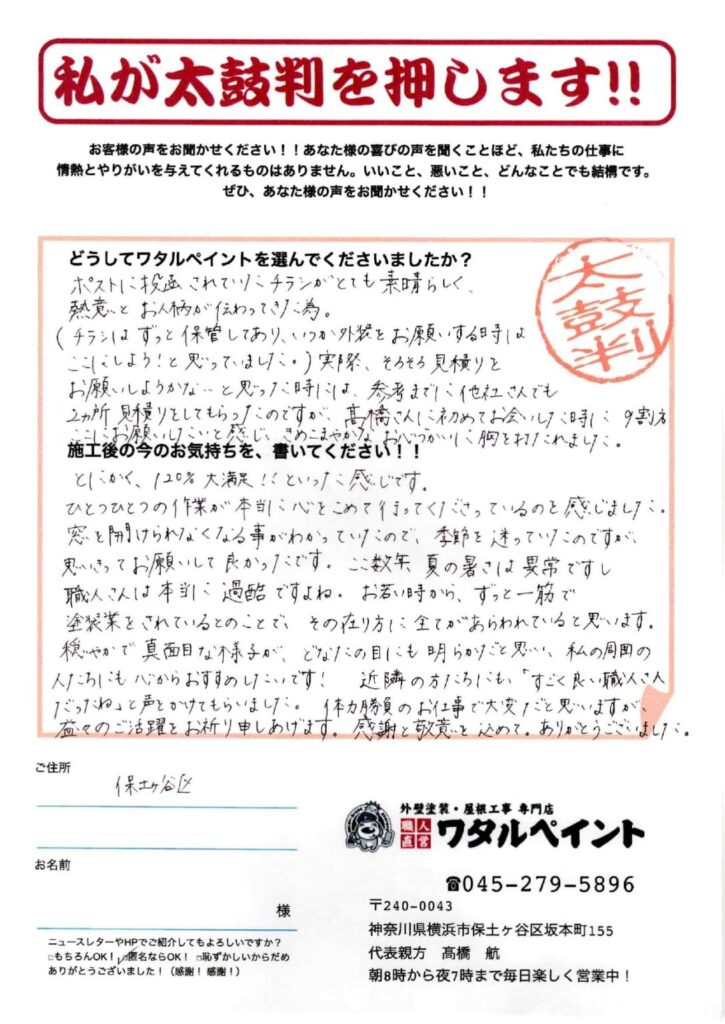 私が太鼓判を押します!!
お客様の声をお聞かせください！！あなた様の喜びの声を聞くことほど、私たちの仕事に
情熱とやりがいを与えてくれるものはありません。いいこと、悪いこと、どんなことでも結構です。
ぜひ、あなた様の声をお聞かせください！！
太鼓判
どうしてワタルペイントを選んでくださいましたか？
ポストに投函されていたチラシがとても素晴らしく、
熱意とお人柄が伝わってきた為。
(チラシはずっと保管してあり、いつか外装をお願いする時は
ここにしよう！と思っていました。)実際、そろそろ見積りを
お願いしようかな…と思った時には、参考までに他社さんでも
2ヵ所見積りをしてもらったのですが、髙橋さんに初めてお会いした時に9割方
ここにお願いしたいと感じ、きめこまやかなお心づかいに胸を打たれました。
施工後の今のお気持ちを、書いてください！！
とにかく、120%大満足!!といった感じです。
ひとつひとつの作業が本当に心をこめて行ってくださっているのを感じました。
窓を開けられなくなる事がわかっていたので、季節を迷っていたのですが、
思いきってお願いして良かったです。ここ数年、夏の暑さは異常ですし
職人さんは本当に過酷ですよね。お若い時から、ずっと一筋で
塗装業をされているとのことで、その在り方に全てがあらわれていると思います。
穏やかで真面目な様子が、どなたの目にも明らかだと思い、私の周囲の
人たちにも心からおすすめしたいです！近隣の方たちにも、「すごく良い職人さん
だったね」と声をかけてもらいました。体力勝負のお仕事で大変だと思いますが、
益々のご活躍をお祈り申しあげます。感謝と敬意を込めて。ありがとうございました。
ご住所
保土ヶ谷区
お名前
様
ニュースレターやHPでご紹介してもよろしいですか？
□もちろんOK！ □匿名ならOK！ □恥ずかしいからだめ
ありがとうございました！（感謝！感謝！）
外壁塗装・屋根工事 専門店
職人直営 ワタルペイント
☎045-279-5896
〒240-0043
神奈川県横浜市保土ヶ谷区坂本町155
代表親方 髙橋 航
朝8時から夜7時まで毎日楽しく営業中！